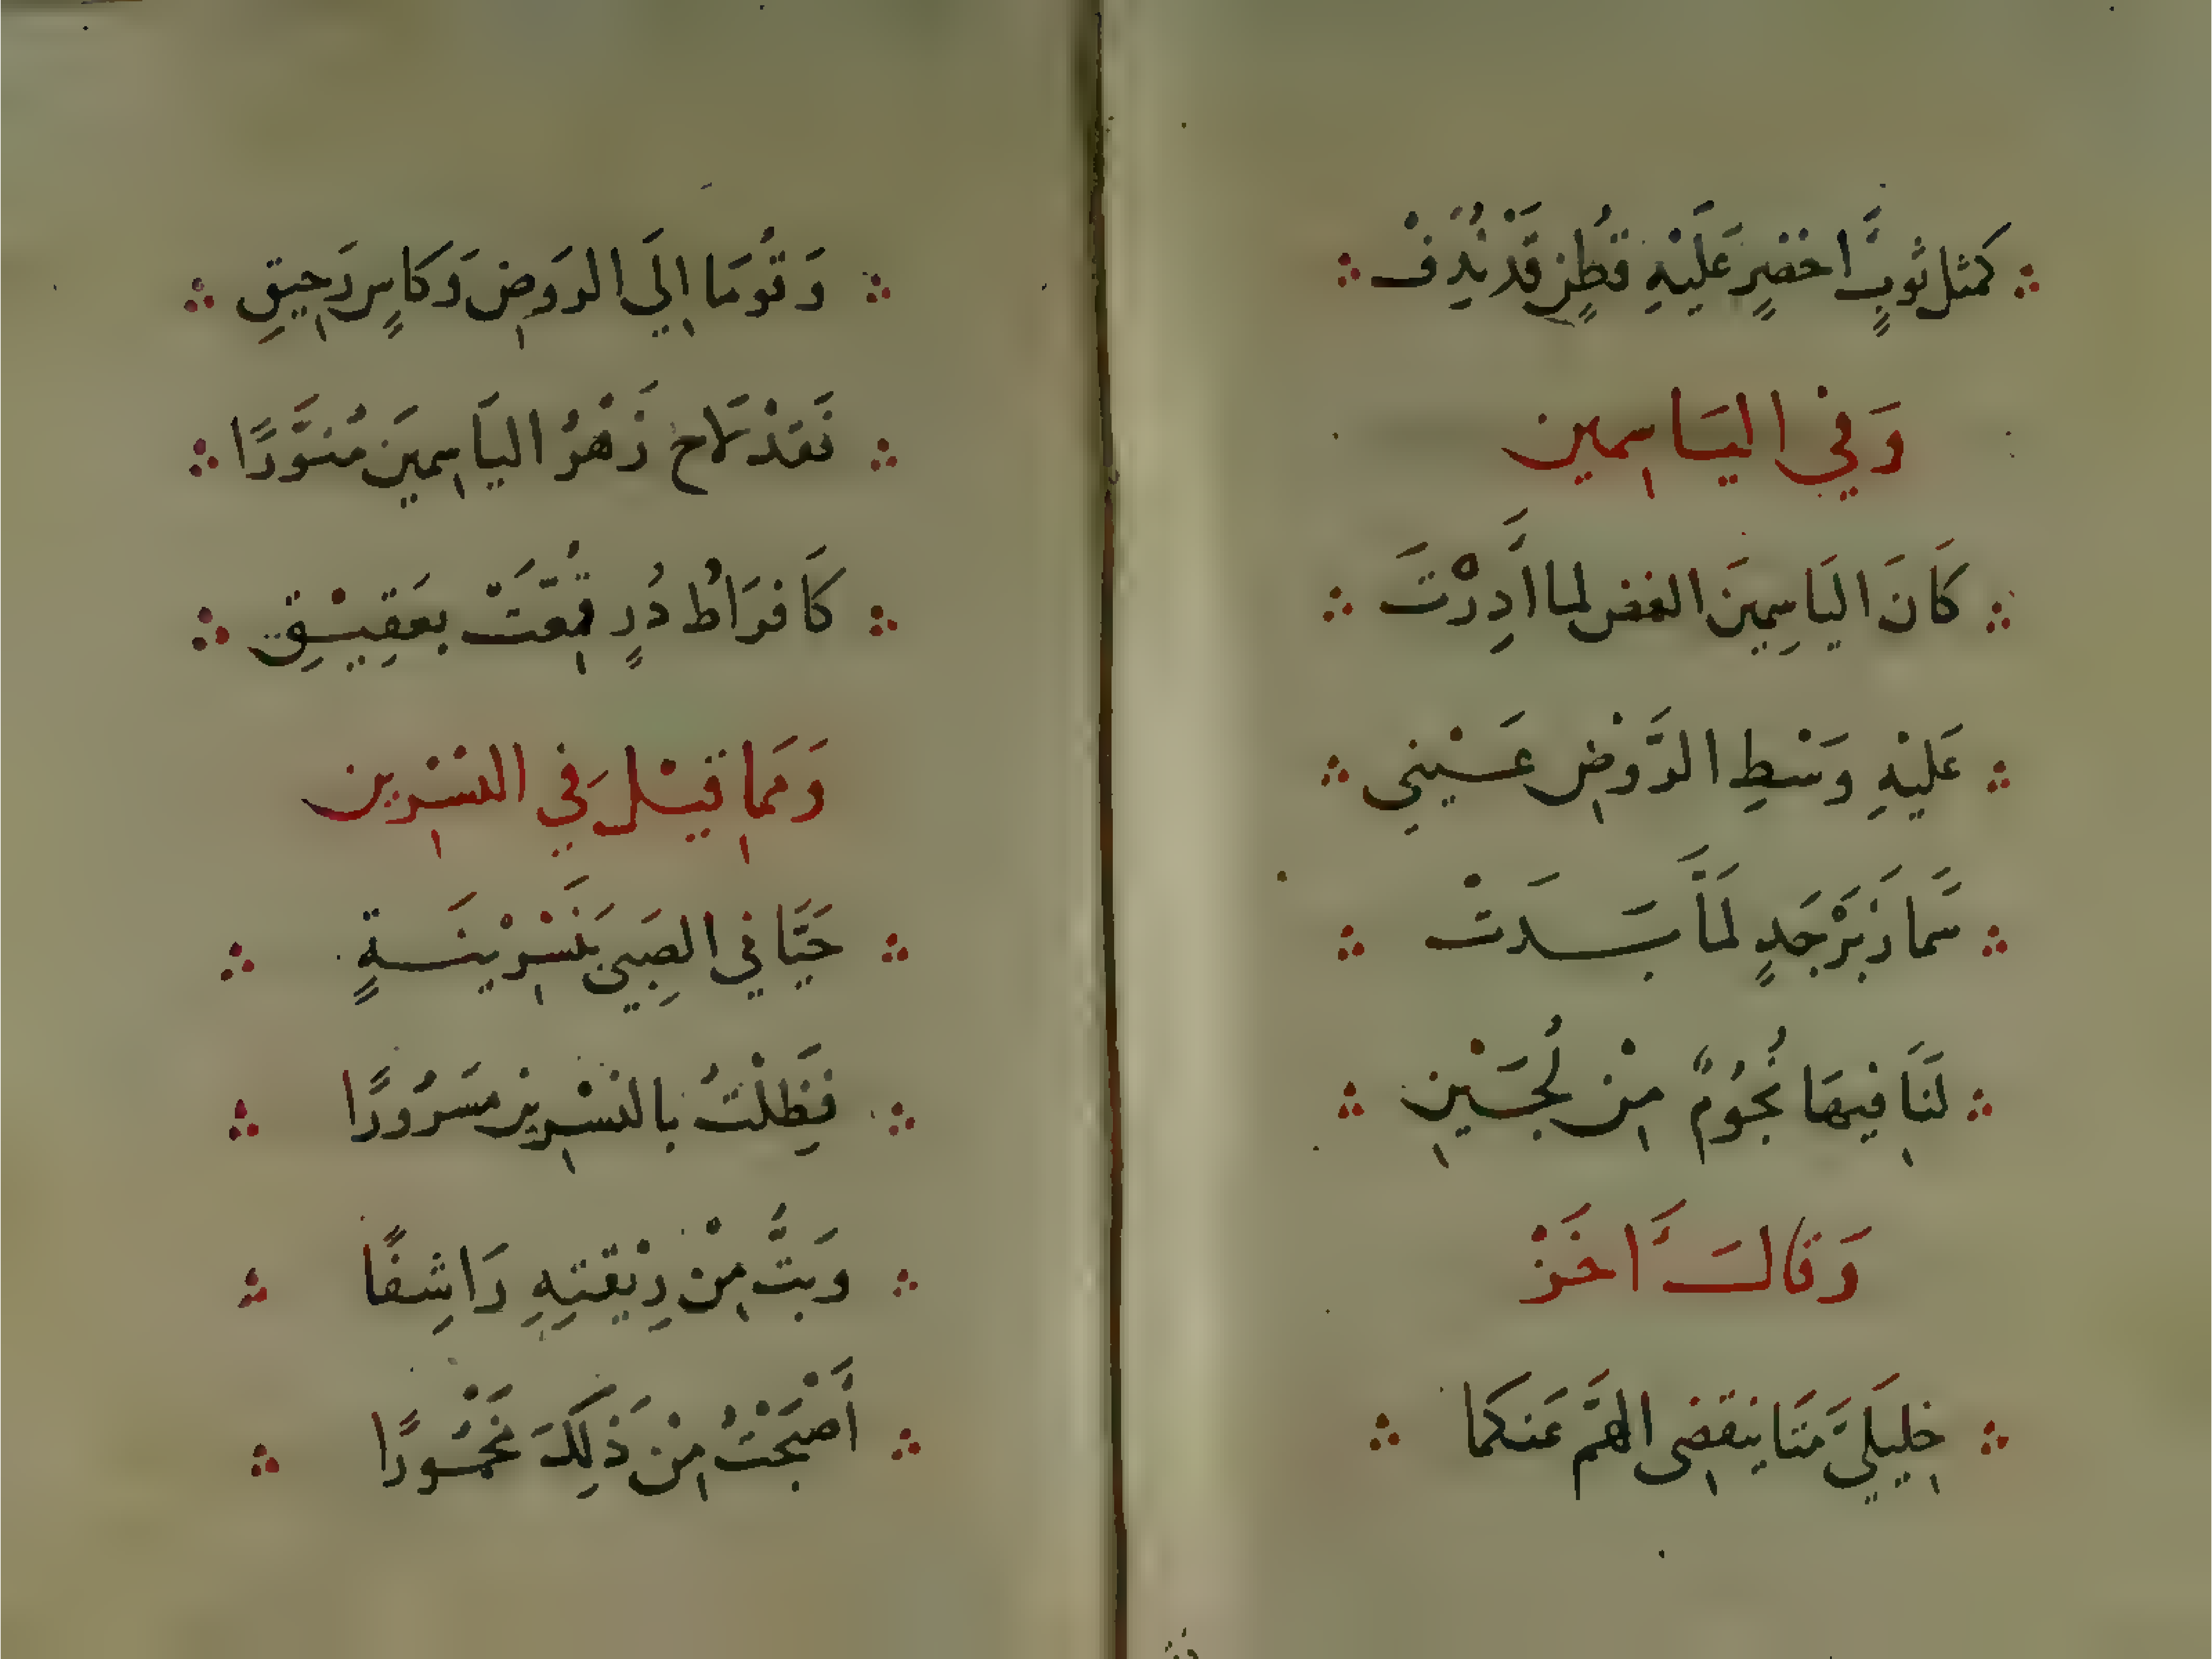 كَمثل ثوبٍ اخضرٍ عَلَيْهِ قُطْنٍ قَدْ نُدِفْ
وَفي اليَاسِمين
كَانَ اليَاسِمِينَ الغض لما اَدِرْتَ
عَليْهِ وَسْطِ الرَّوضِ عَيْني
سَمَا زَبَرْجَدٍ لَمَّا بَدَتْ
لَنَا فِيهَا نُجُومٌ مِنْ لُجَيْنِ
وَقالَ اخَرْ
خلِيلَيَّ مَتَا ينقضِى الهَّم عَنكما
وَقُومَا اِلَي الروَضِ وَكاسِ رَحِيقِ
فَقدْ لَاح زَهْرُ اليَاسِمينَ مُنوَّرًا
كَافرَاطُ دُرٍ قُمِّعَتّ بعَقِيْقِ
وَمما قيْل في النسْرِين
حَيَّا في الصَبِي بنَسْرِيْنَةٍ
فَظِلْتُ بالنسْرِين مسَرُورًا
وَبتُّ مِنْ رِيْقتِهِ رَاشِفًا
أَصْبَحْتُ مِنْ ذَلِكَ مَخْمُورًا